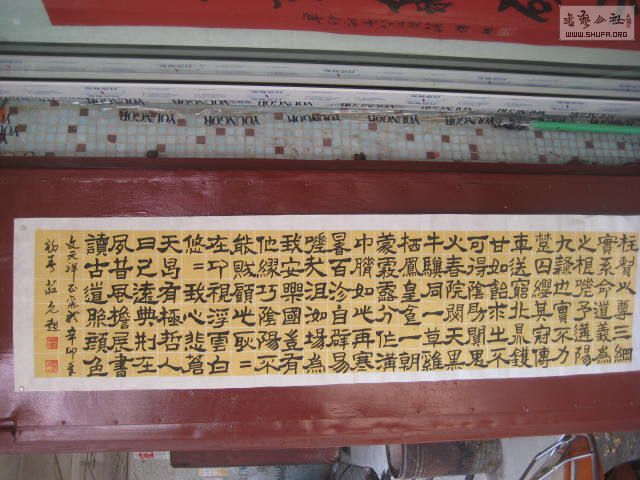 書藝公社
WWW.SHUFA.ORG
YOUNGOR
YOUNGOR
YOUNGOR
YOUNGOR
YOUNGOR
柱賴以尊三綱
實系命道義為
之根嗟予遘陽
九隸也實不力
楚囚纓其冠傳
車送窮北鼎鑊
甘如飴求之不
可得陰房闃鬼
火春院閟天黑
牛驥同一草雞
栖鳳皇食一朝
蒙霧露分作溝
中瘠如此再寒
暑百沴自辟易
嗟哉沮洳場為
我安樂國豈有
他繆巧陰陽不
能賊顧此耿=
在仰視浮雲白
悠=我心悲蒼
天曷有極哲人
日已遠典刑在
夙昔風檐展書
讀古道照顏色
文天祥正氣歌辛卯年